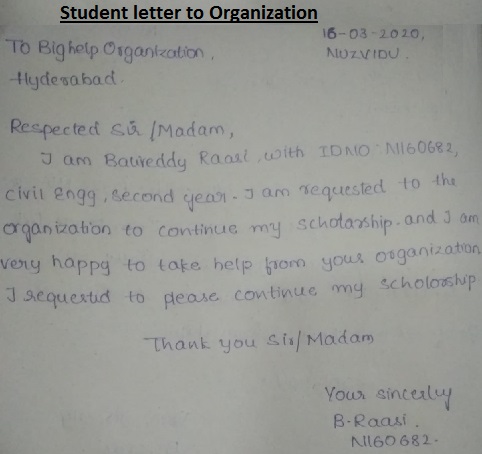 Student letter to Organization
16-03-2020,
To Bighelp Organization,
NUZVIDU.
Hyderabad.
Respected Sir /Madam,
I am Baureddy Raasi, with IDNO: N160682,
civil Engg, second year. I am requested to the
organization to continue my scholarship. and I am
very happy to take help from your organization
I requested to please continue my scholorship
Thank you Sir/Madam
Your sincerley
B-Raasi.
N160682.